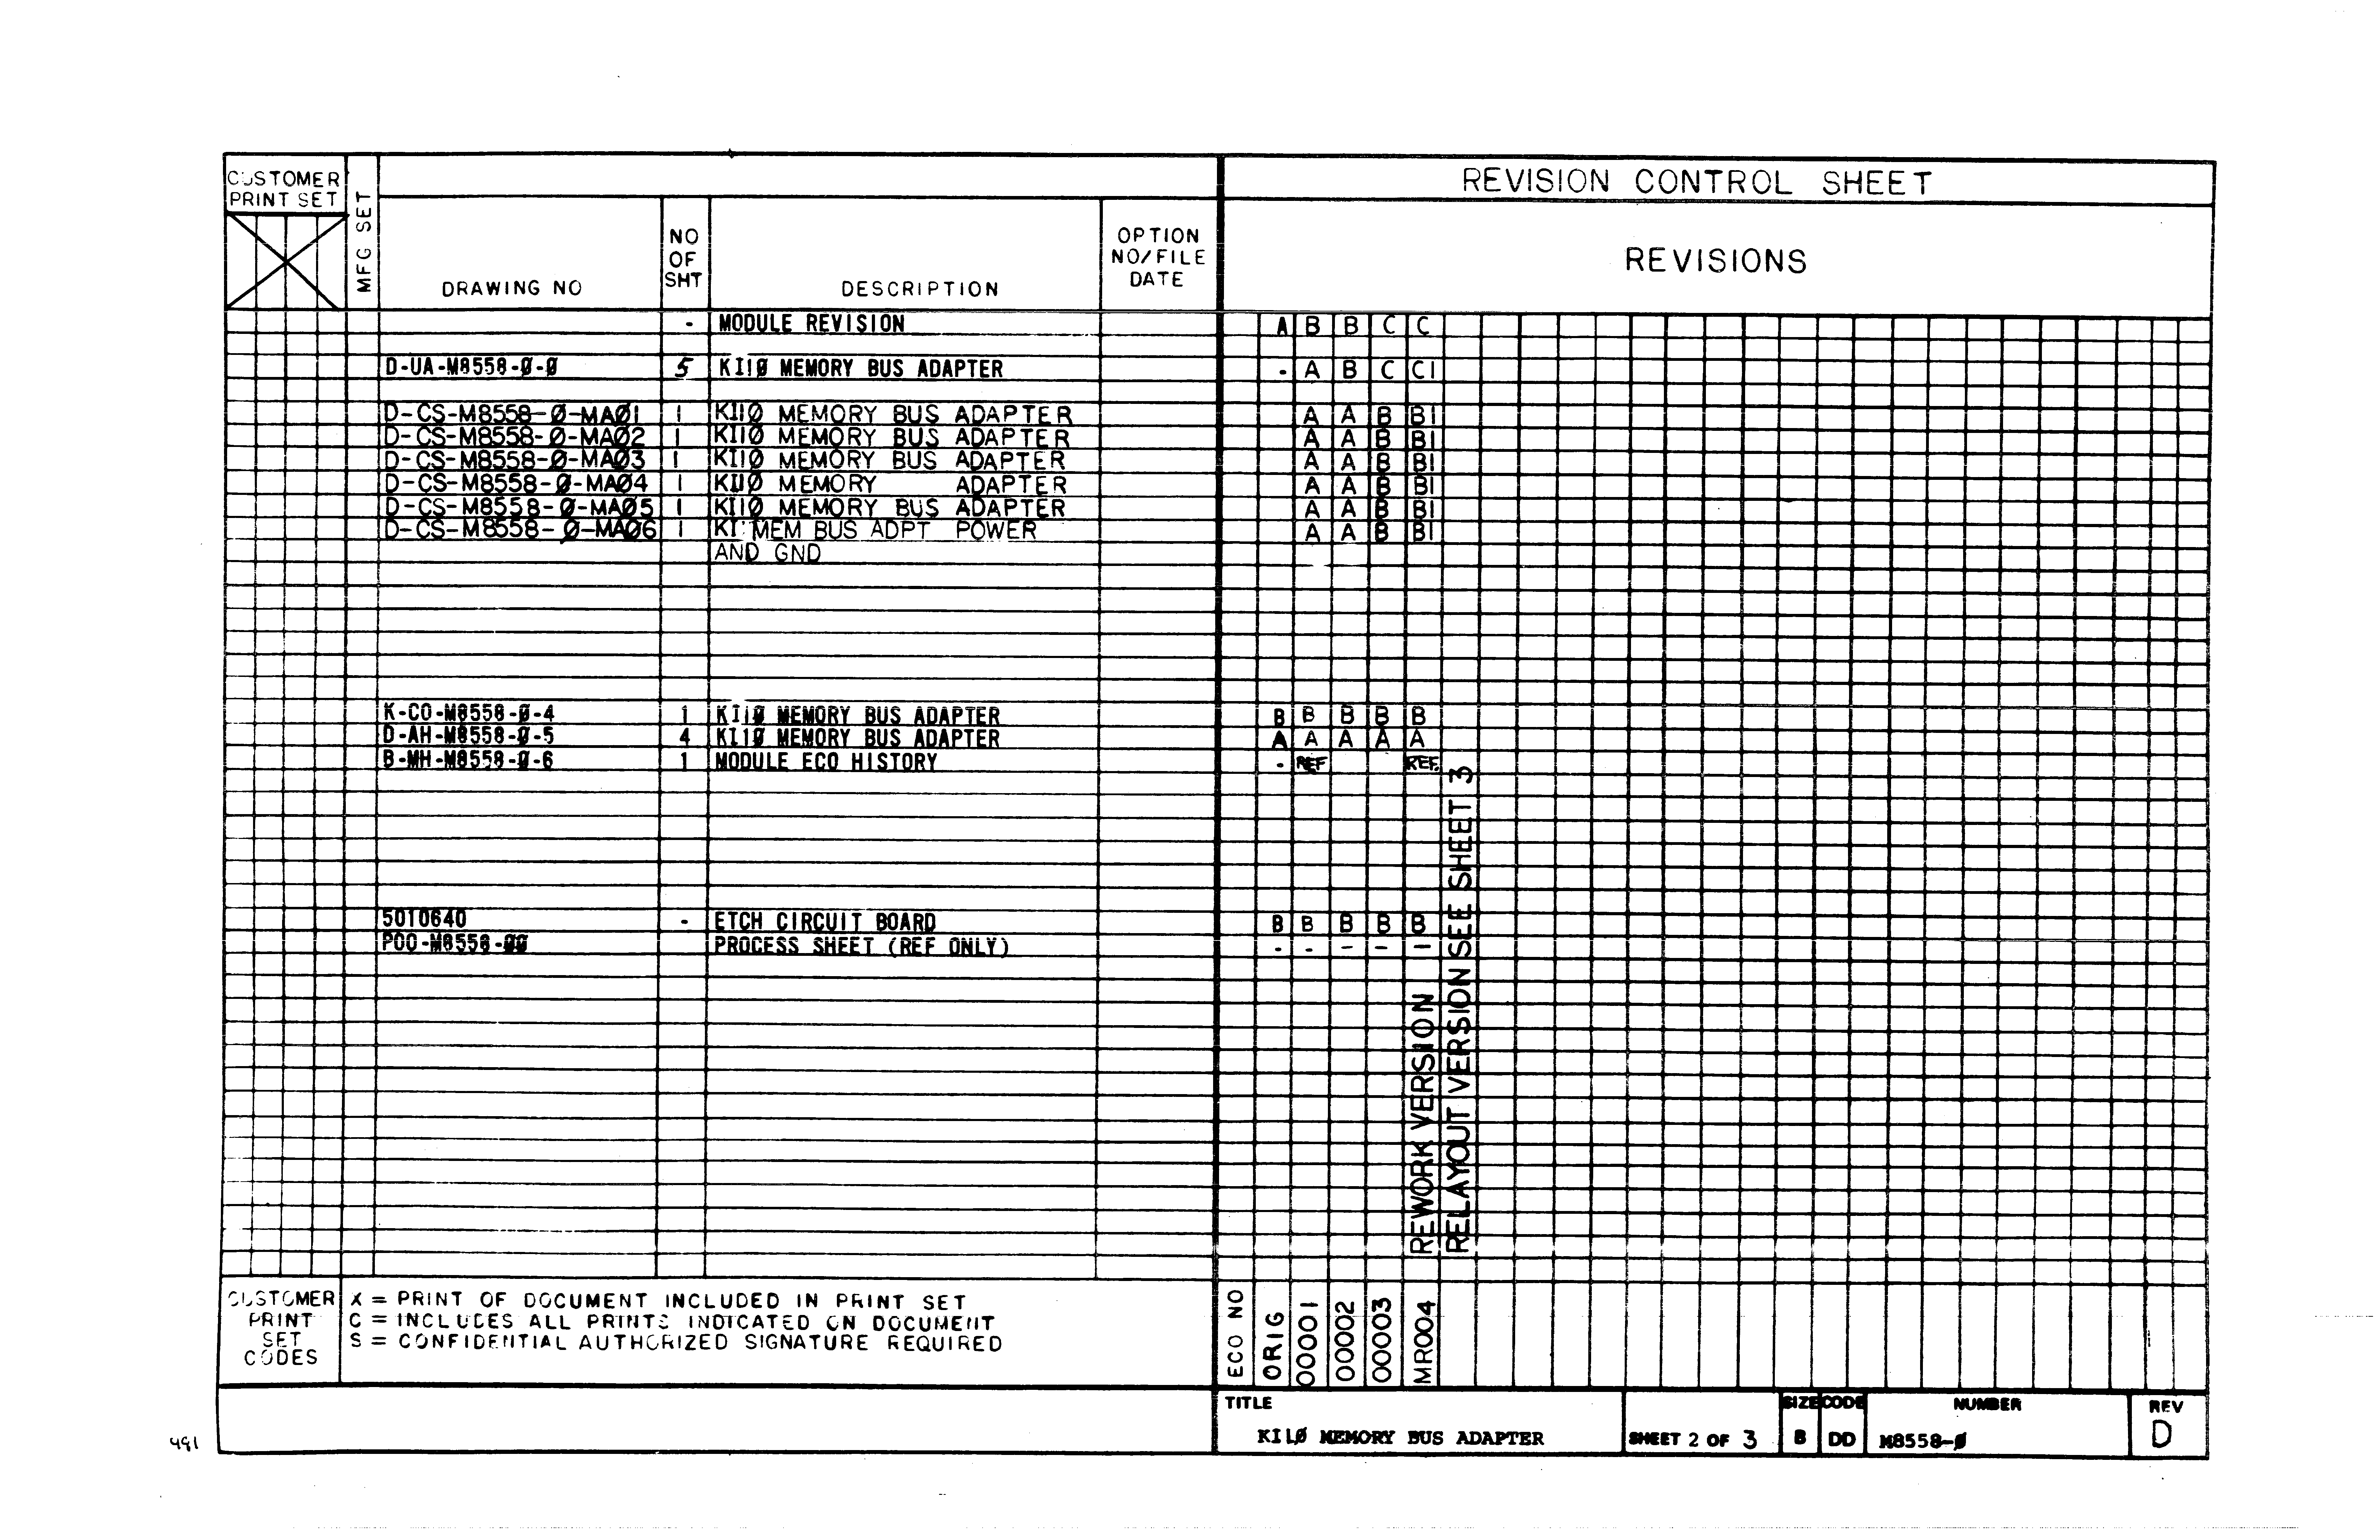 CUSTOMER
PRINT SET
MFG SET
REVISION CONTROL SHEET
DRAWING NO
NO
OF
SHT
DESCRIPTION
OPTION
NO/FILE
DATE
REVISIONS
- MODULE REVISION A B B C C
D-UA-M8558-Ø-Ø 5 KI1Ø MEMORY BUS ADAPTER - A B C C1
D-CS-M8558-Ø-MAØ1 1 KI1Ø MEMORY BUS ADAPTER A A B B1
D-CS-M8558-Ø-MAØ2 1 KI1Ø MEMORY BUS ADAPTER A A B B1
D-CS-M8558-Ø-MAØ3 1 KI1Ø MEMORY BUS ADAPTER A A B B1
D-CS-M8558-Ø-MAØ4 1 KI1Ø MEMORY ADAPTER A A B B1
D-CS-M8558-Ø-MAØ5 1 KI1Ø MEMORY BUS ADAPTER A A B B1
D-CS-M8558-Ø-MAØ6 1 KI MEM BUS ADPT POWER A A B B1
AND GND
K-CO-M8558-Ø-4 1 KI1Ø MEMORY BUS ADAPTER B B B B B
D-AH-M8558-Ø-5 4 KI1Ø MEMORY BUS ADAPTER A A A A A
B-MH-M8558-Ø-6 1 MODULE ECO HISTORY - REF REF.
5010640 - ETCH CIRCUIT BOARD B B B B B
P00-M8558-ØØ PROCESS SHEET (REF ONLY) - - - - -
REWORK VERSION
RELAYOUT VERSION SEE SHEET 3
CUSTOMER
PRINT
SET
CODES
X = PRINT OF DOCUMENT INCLUDED IN PRINT SET
C = INCLUDES ALL PRINTS INDICATED ON DOCUMENT
S = CONFIDENTIAL AUTHORIZED SIGNATURE REQUIRED
ECO NO
ORIG
00001
00002
00003
MR004
TITLE
KI1Ø MEMORY BUS ADAPTER
SHEET 2 OF 3
SIZE
B
CODE
DD
NUMBER
M8558-Ø
REV
D
491